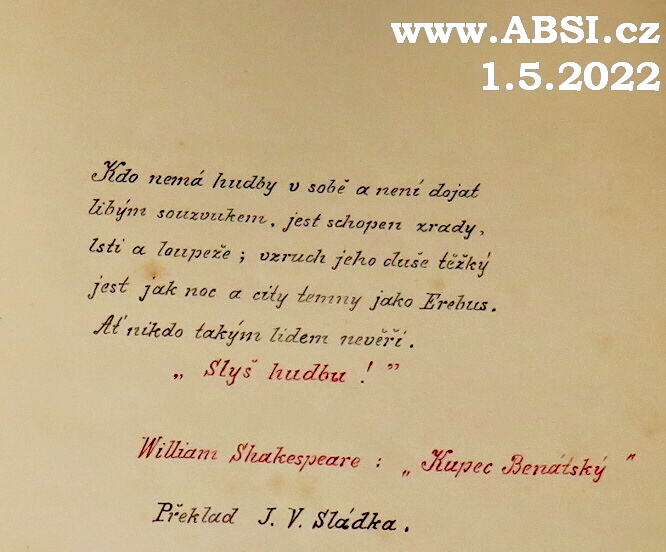 www.ABSI.cz
1.5.2022
Kdo nemá hudby v sobě a není dojat
libým souzvukem, jest schopen zrady,
lsti a loupeže ; vzruch jeho duše těžký
jest jak noc a city temny jako Erebus.
Ať nikdo takým lidem nevěří.
„ Slyš hudbu ! ”
William Shakespeare : „ Kupec Benátský ”
Překlad J. V. Sládka.